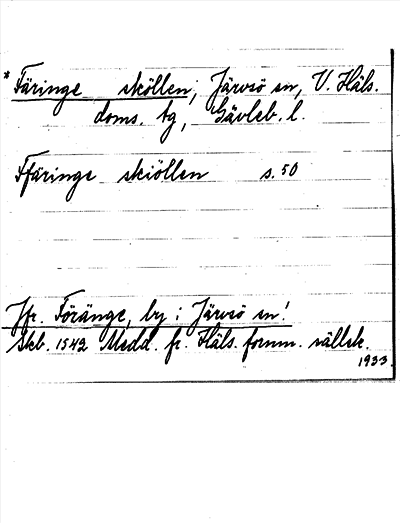 * Färinge sköllen, Järvsö sn, V. Häls.
doms. tg, Gävleb. l.
Ffäringe skiöllen s. 50
Jfr. Föränge, by i Järvsö sn!
Skb. 1542 Medd. fr. Häls. fornm. sällsk.
1933